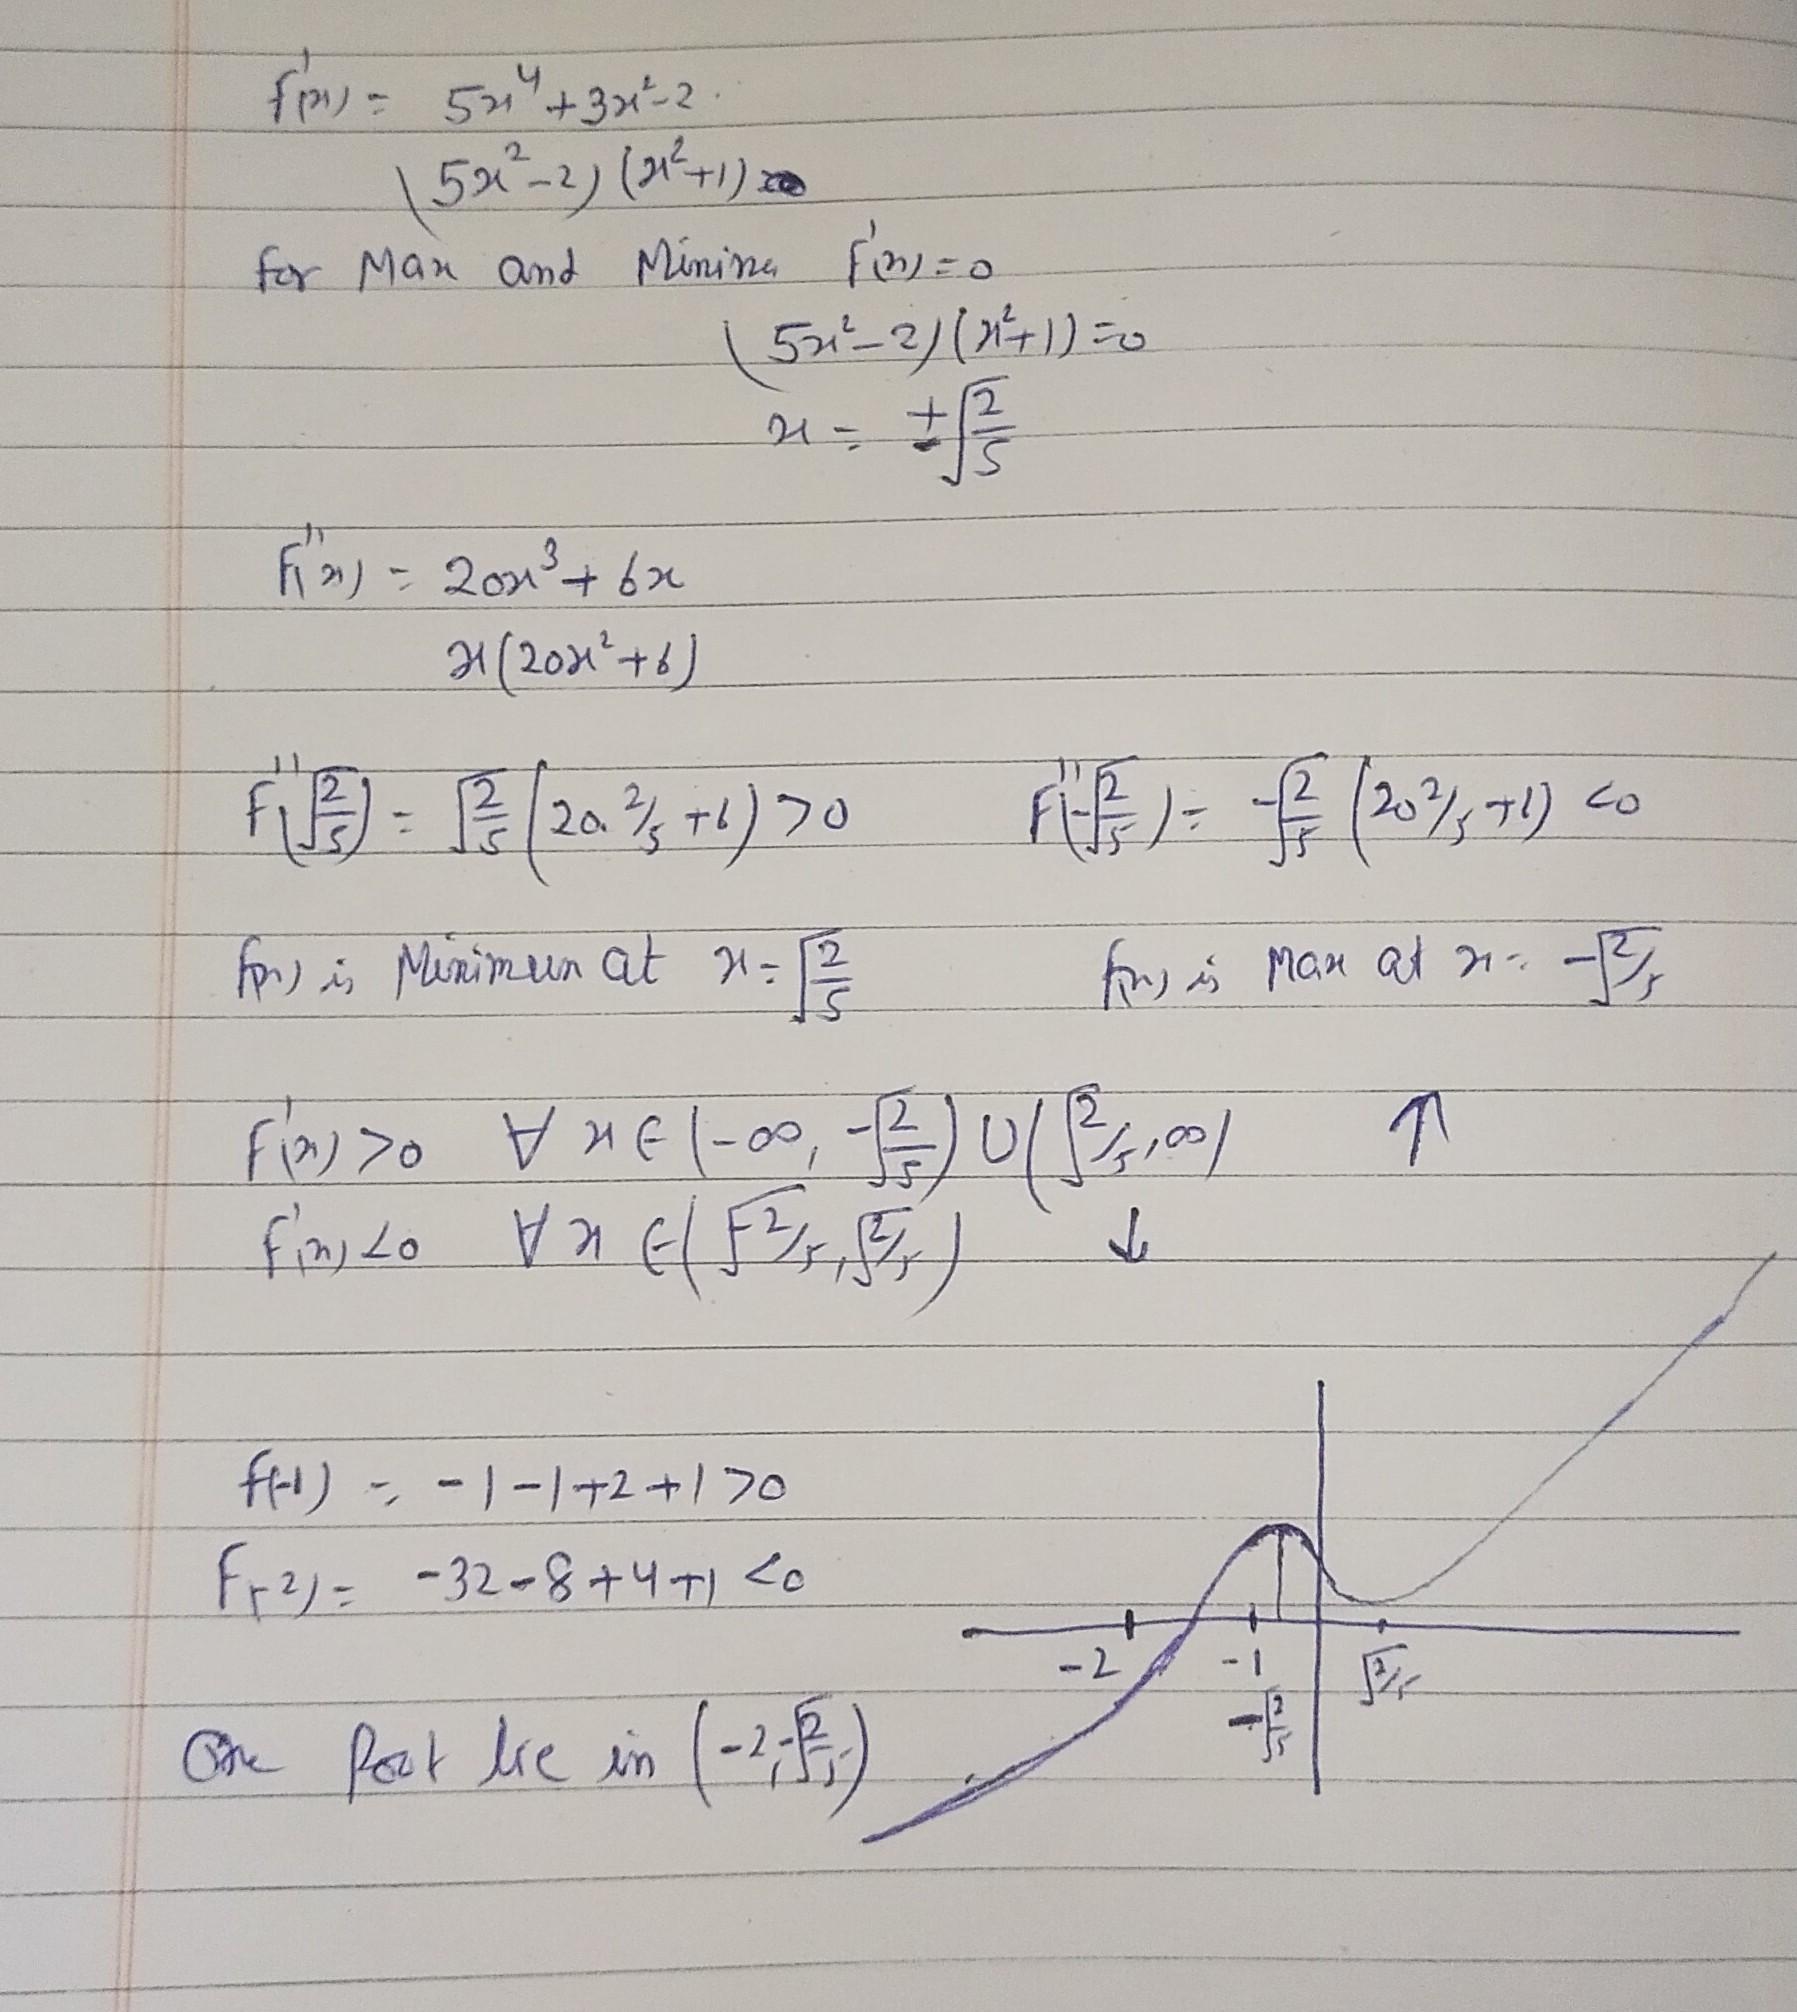 f'(x) = 5x⁴+3x²-2.
(5x²-2)(x²+1)
for Max and Minima f'(x)=0
(5x²-2)(x²+1)=0
x = ±√(2/5)
f''(x) = 20x³+6x
x(20x²+6)
F''(√(2/5)) = √(2/5) (20.2/5+6)>0 F''(-√(2/5)) = -√(2/5) (20 2/5+6) <0
f(x) is Minimum at x=√(2/5) f(x) is Max at x= -√(2/5)
F'(x)>0 ∀ x∈(-∞, -√(2/5)) ∪ (√(2/5),∞) ↑
f'(x)<0 ∀ x ∈(-√(2/5),√(2/5)) ↓
f(-1) = -1-1+2+1>0
F(-2)= -32-8+4+1 <0
-2 -1 √(2/5)
-√(2/5)
One Root lie in (-2,-√(2/5))